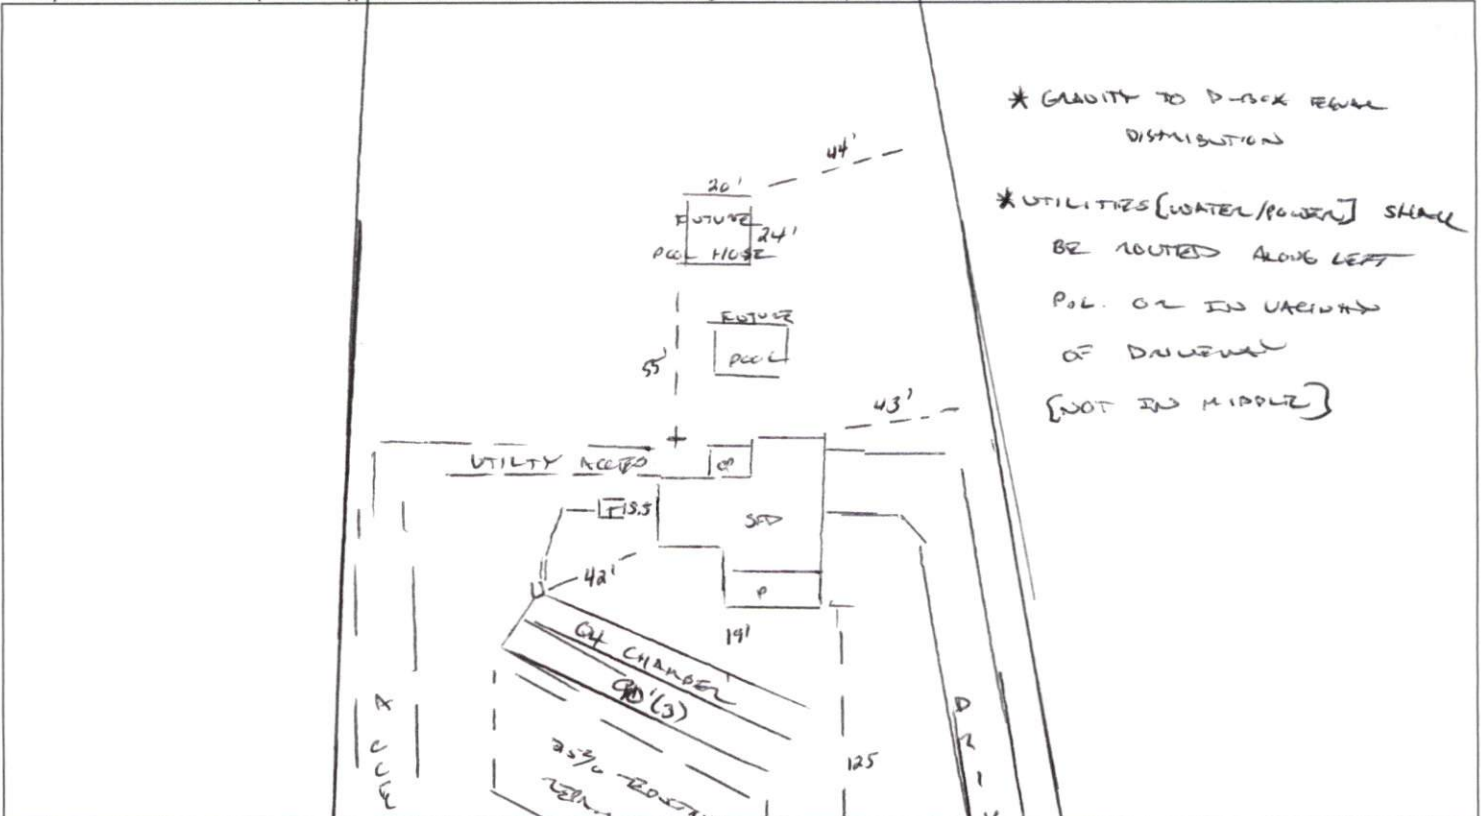 * GRAVITY TO D-BOX EQUAL
DISTRIBUTION
* UTILITIES [WATER/POWER] SHALL
BE ROUTED ALONG LEFT
OF DRIVEWAY
[NOT IN MIDDLE]
44'
20'
FUTURE
24'
POOL HOUSE
FUTURE
POOL
55'
43'
UTILTY ACCESS
CP
T 15.5
SFD
42'
P
19'
Q4 CHAMBER
90'(3)
125
25%
A
C
C
E
D
R
I
V